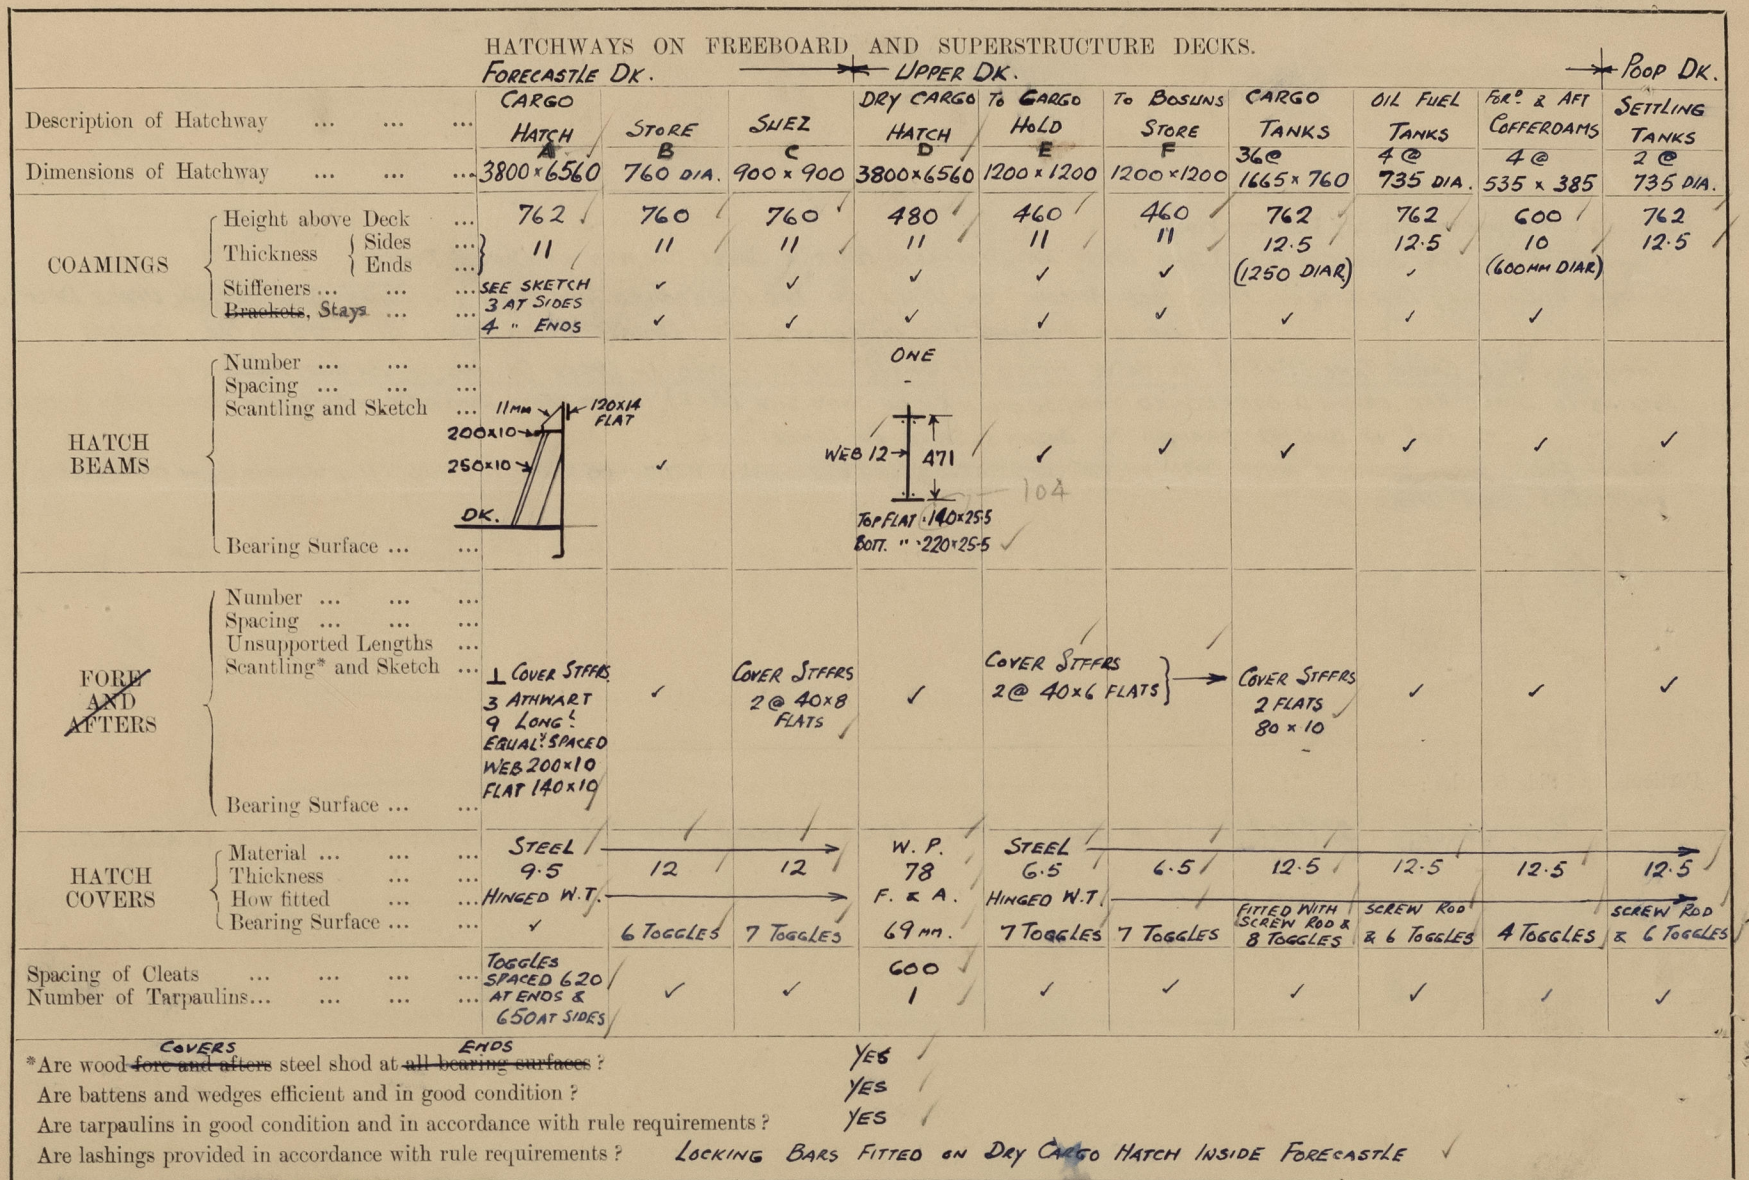 HATCHWAYS ON FREEBOARD AND SUPERSTRUCTURE DECKS.
FORECASTLE DK. UPPER DK. POOP DK.
Description of Hatchway ... ... ... CARGO HATCH STORE SUEZ DRY CARGO HATCH TO CARGO HOLD TO BOSUNS STORE CARGO TANKS OIL FUEL TANKS FORD & AFT COFFERDAMS SETTLING TANKS
A B C D E F 36@ 4@ 4@ 2@
Dimensions of Hatchway ... ... ... 3800×6560 760 DIA. 900×900 3800×6560 1200×1200 1200×1200 1665×760 735 DIA. 535×385 735 DIA.
COAMINGS
Height above Deck ... 762 760 760 480 460 460 762 762 600 762
Thickness Sides ... 11 11 11 11 11 11 12.5 12.5 10 12.5
Ends ... (1250 DIAR) (600MM DIAR)
Stiffeners ... ... ... SEE SKETCH ✓ ✓ ✓ ✓ ✓ ✓
Brackets, Stays ... ... 3 AT SIDES
4 " ENDS ✓ ✓ ✓ ✓ ✓ ✓ ✓ ✓
HATCH BEAMS
Number ... ... ... ONE
Spacing ... ... ... -
Scantling and Sketch ... 11MM 120×14 FLAT
200×10
250×10 ✓ WEB 12 471 ✓ ✓ ✓ ✓ ✓ ✓
104
DK. TOP FLAT 140×25.5
Bearing Surface ... ... BOTT. " 220×25.5
FORE AND AFTERS
Number ... ... ...
Spacing ... ... ...
Unsupported Lengths ...
Scantling* and Sketch ... ⊥ COVER STFFRS ✓ COVER STFFRS ✓ COVER STFFRS COVER STFFRS ✓ ✓ ✓
3 ATHWART 2@ 40×8 2@ 40×6 FLATS 2 FLATS
9 LONGL FLATS 80×10
EQUALY SPACED
WEB 200×10
FLAT 140×10
Bearing Surface ... ...
HATCH COVERS
Material ... ... ... STEEL W.P. STEEL
Thickness ... ... 9.5 12 12 78 6.5 6.5 12.5 12.5 12.5 12.5
How fitted ... ... HINGED W.T. F. & A. HINGED W.T.
Bearing Surface ... ... ✓ 6 TOGGLES 7 TOGGLES 69MM. 7 TOGGLES 7 TOGGLES FITTED WITH SCREW ROD & 8 TOGGLES SCREW ROD & 6 TOGGLES 4 TOGGLES SCREW ROD & 6 TOGGLES
Spacing of Cleats ... ... ... TOGGLES SPACED 620 600
Number of Tarpaulins... ... ... AT ENDS & 650 AT SIDES ✓ ✓ 1 ✓ ✓ ✓ ✓ ✓ ✓
COVERS ENDS
*Are wood fore and afters steel shod at all bearing surfaces? YES
Are battens and wedges efficient and in good condition? YES
Are tarpaulins in good condition and in accordance with rule requirements? YES
Are lashings provided in accordance with rule requirements? LOCKING BARS FITTED ON DRY CARGO HATCH INSIDE FORECASTLE ✓